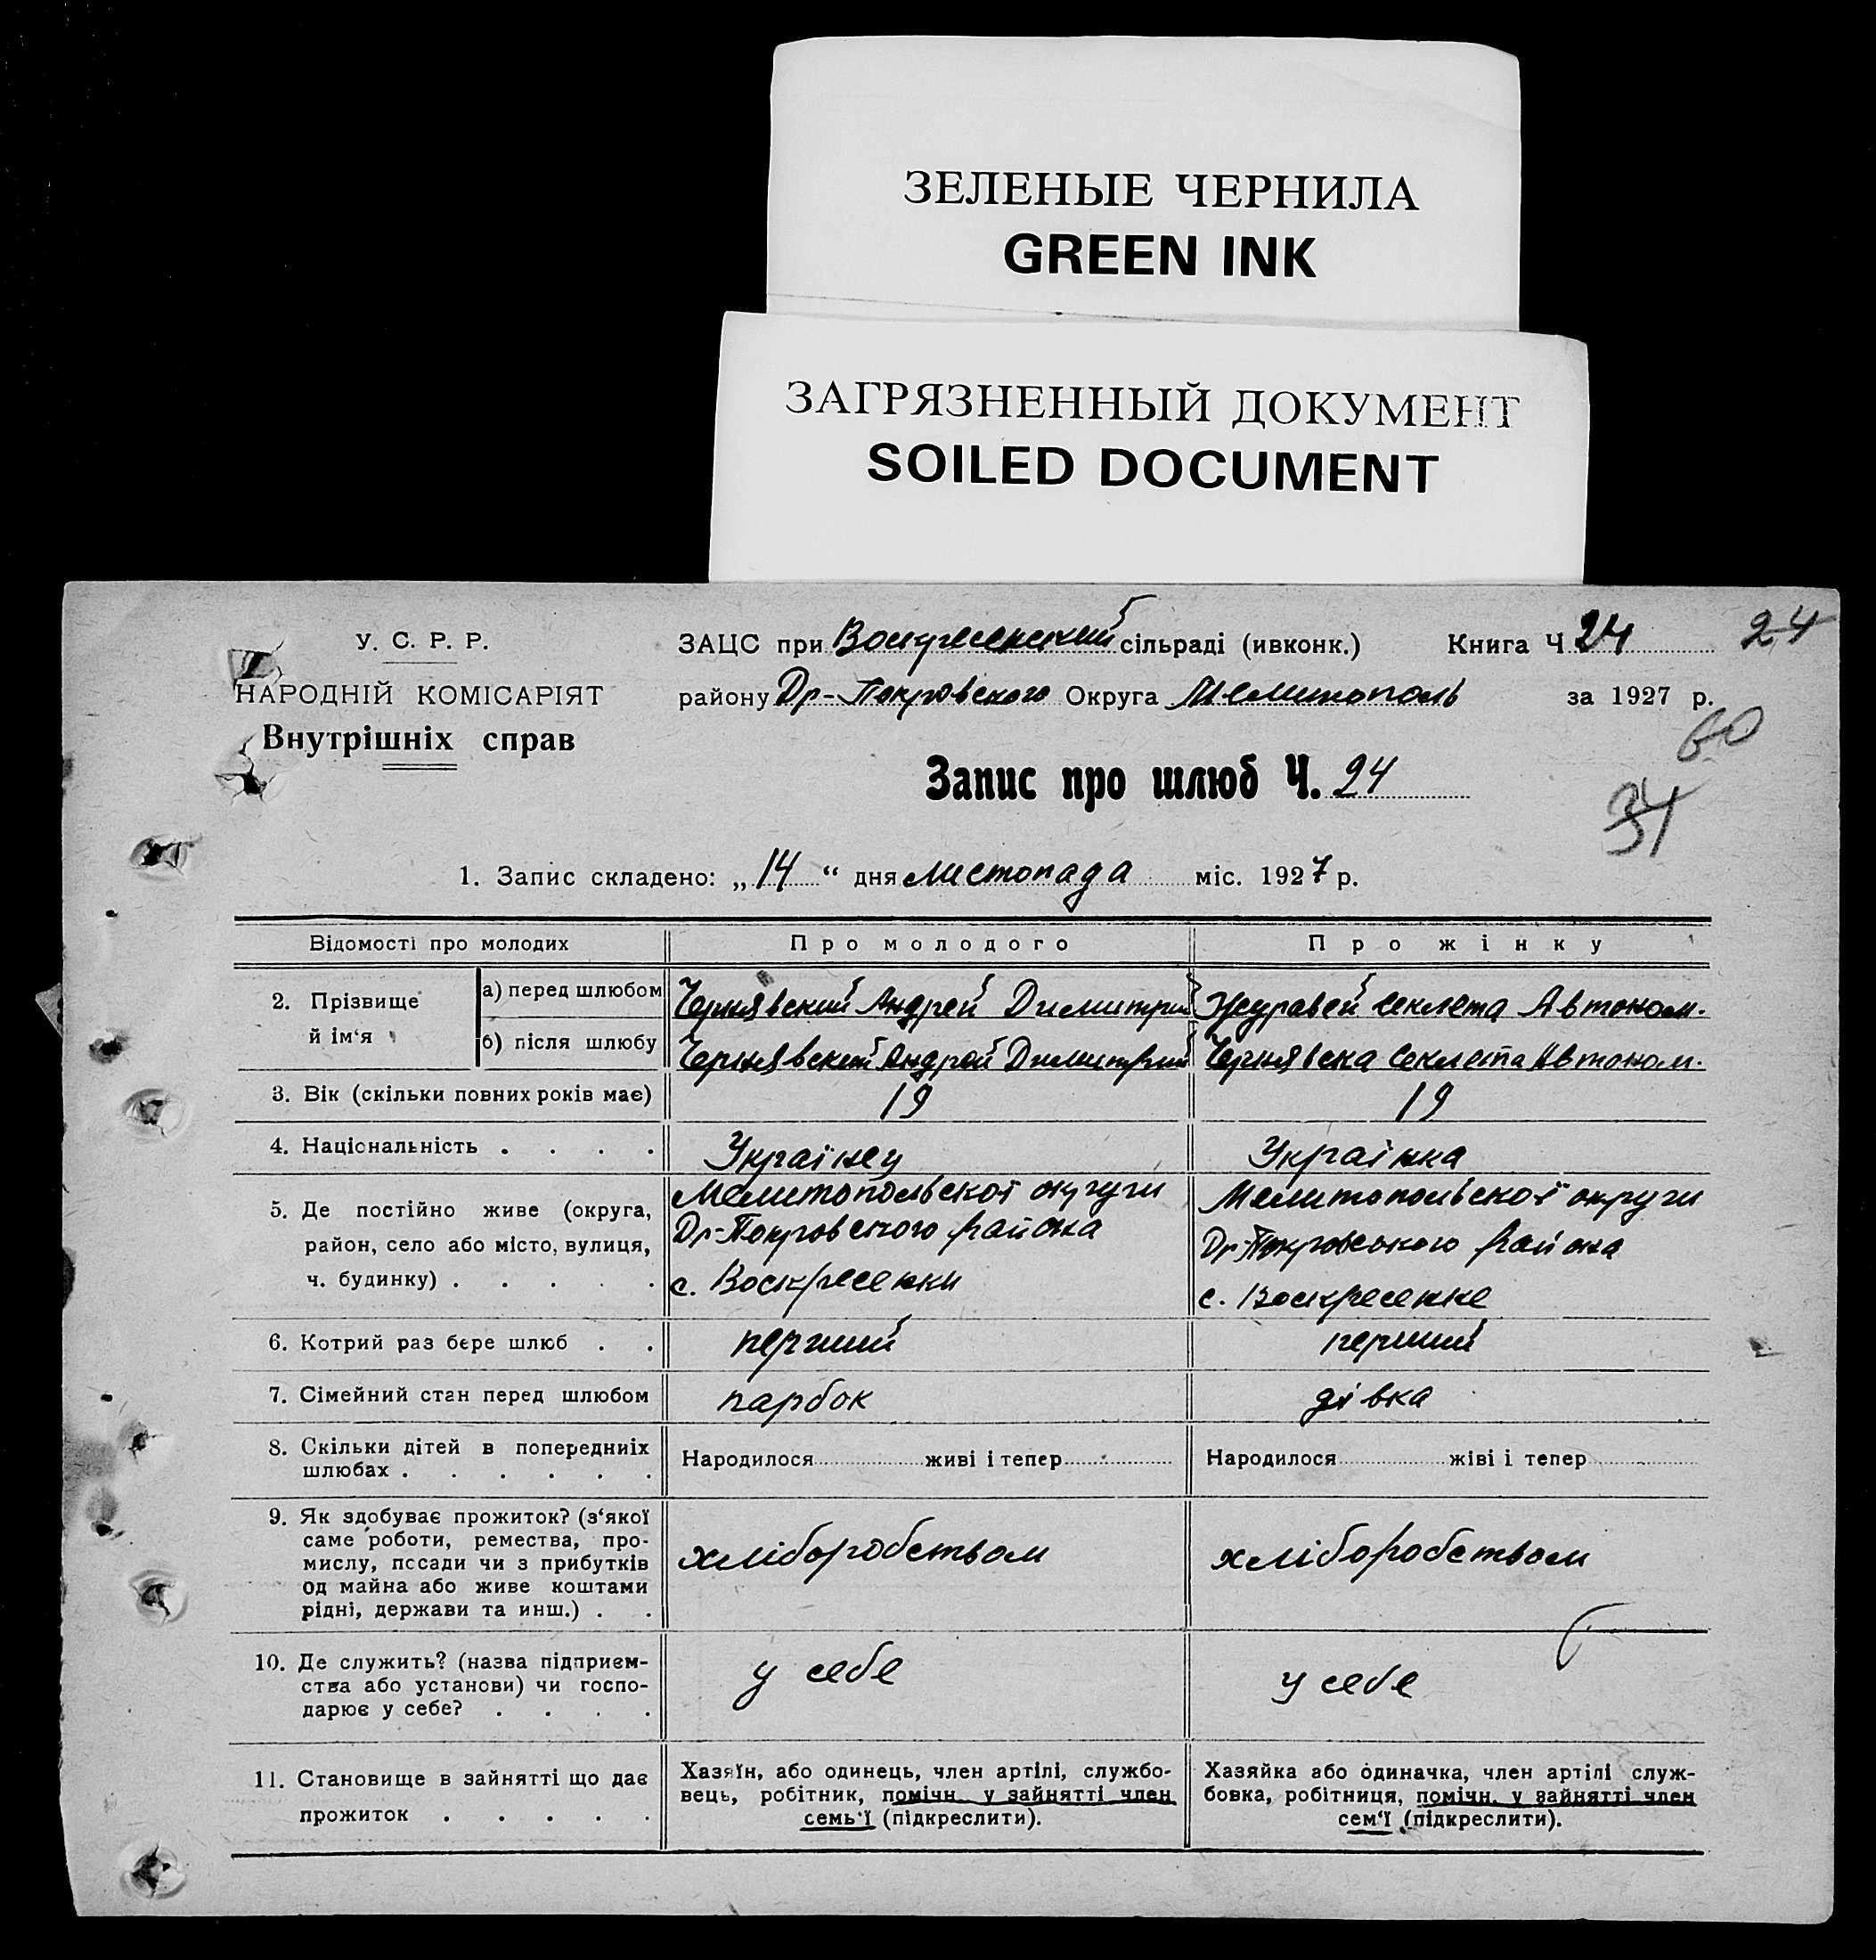 ЗЕЛЕНЫЕ ЧЕРНИЛА
GREEN INK
ЗАГРЯЗНЕННЫЙ ДОКУМЕНТ
SOILED DOCUMENT
У. С. Р. Р.
НАРОДНІЙ КОМІСАРІЯТ
Внутрішніх справ
ЗАЦС при Воскресенский сільраді (ивконк.) Книга Ч 24 24
району Др-Покровского Округа Мелитополь за 1927 р.
60
Запис про шлюб Ч. 24
34
1. Запис складено: „14“ дня листопада міс. 1927 р.
Відомості про молодих Про молодого Про жінку
2. Прізвище й ім‘я
а) перед шлюбом Чернявский Андрей Димитрий Журавей Секлета Автоном.
б) після шлюбу Чернявский Андрей Димитрий Чернявска Секлета Автоном.
3. Вік (скільки повних років має) 19 19
4. Національність . . . . Українец Українка
5. Де постійно живе (округа,
район, село або місто, вулиця,
ч. будинку) . . . . .
Мелитопольскої округи
Др-Покровского района
с. Воскресенки
Мелитопольскої округи
Др-Покровського района
с. Воскресенке
6. Котрий раз бере шлюб . . перший перший
7. Сімейний стан перед шлюбом парбок дівка
8. Скільки дітей в попередниіх
шлюбах . . . . . .
Народилося живі і тепер
Народилося жіві і тепер
9. Як здобуває прожиток? (з‘якої
саме роботи, ремества, про-
мислу, посади чи з прибутків
од майна або живе коштами
рідні, держави та инш.) . .
хліборобством
хліборобством
10. Де служить? (назва підприєм-
ства або установи) чи госпо-
дарює у себе? . . . .
у себе
у себе
11. Становище в зайнятті що дає
прожиток . . . . .
Хазяїн, або одинець, член артілі, службо-
вець, робітник, помічн. у зайнятті член
семь‘ї (підкреслити).
Хазяйка або одиначка, член артілі служ-
бовка, робітниця, помічн. у зайнятті член
сем‘ї (підкреслити).